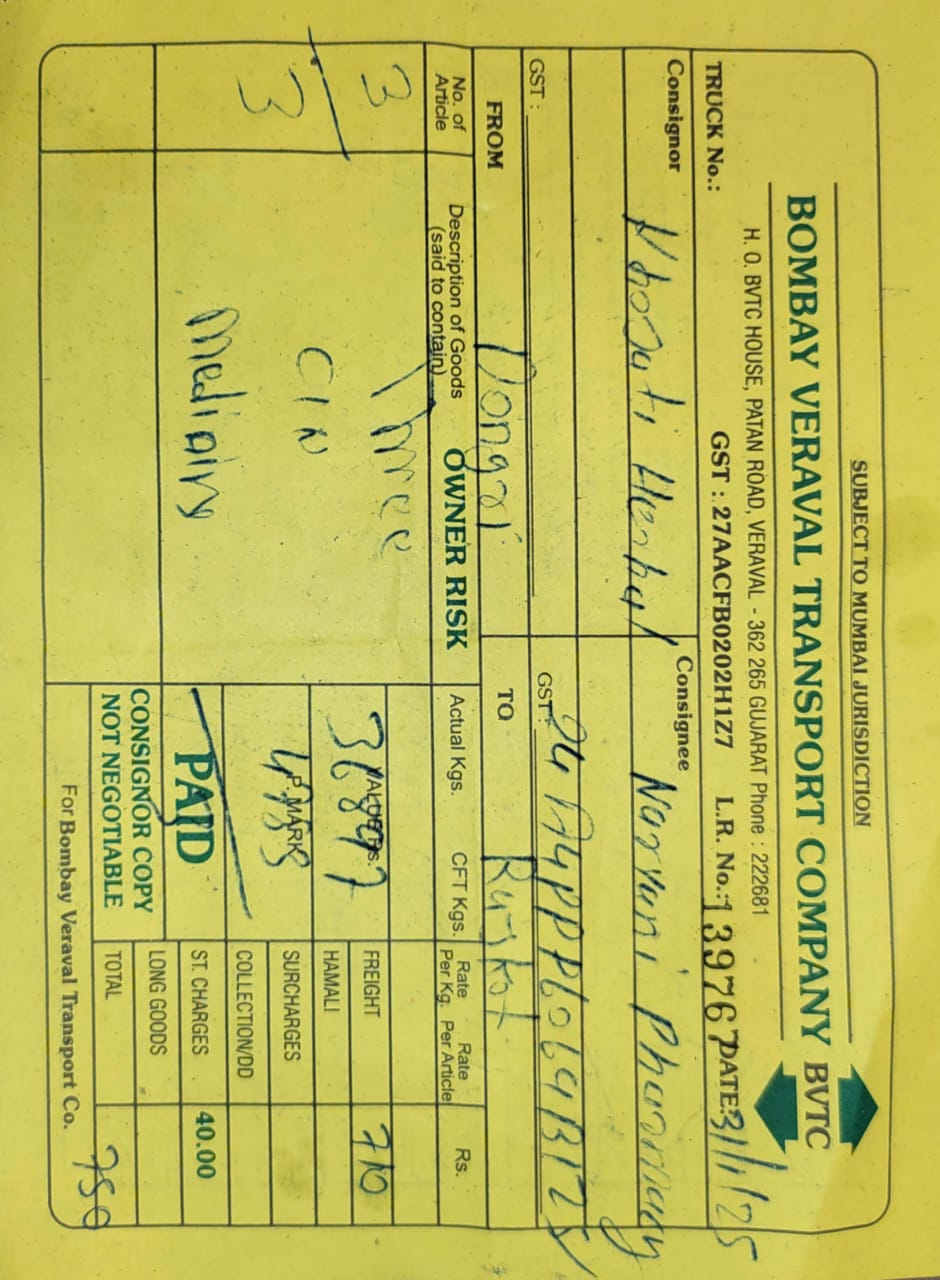 SUBJECT TO MUMBAI JURISDICTION
BOMBAY VERAVAL TRANSPORT COMPANY BVTC
H. O. BVTC HOUSE, PATAN ROAD, VERAVAL - 362 265 GUJARAT Phone : 222681
TRUCK No.: GST : 27AACFB0202H1Z7 L.R. No.: 139767 DATE: 31/1/25
Consignor Consignee
Narryani Pharmacy
GST : GST :
FROM Dongri TO Rajkot
No. of Article Description of Goods (said to contain) OWNER RISK Actual Kgs. CFT Kgs. Rate Per Kg. Rate Per Article Rs.
3 Three
FREIGHT 710
VALUE RS. 36897
HAMALI
3 P. MARK
SURCHARGES
COLLECTION/DD
PAID
ST. CHARGES 40.00
LONG GOODS
CONSIGNOR COPY
NOT NEGOTIABLE
TOTAL 750
For Bombay Veraval Transport Co.